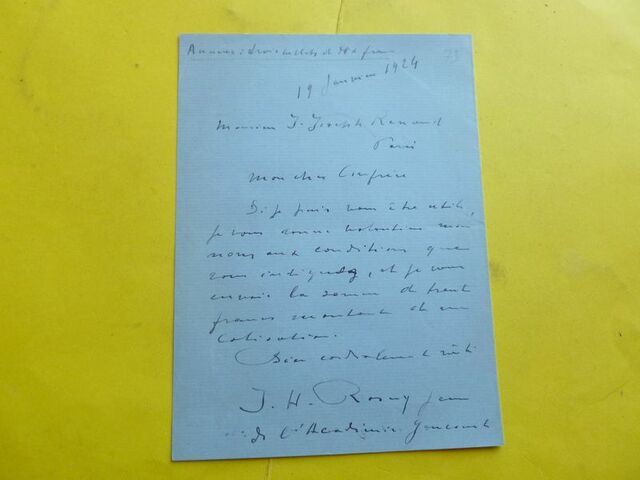 19 Janvier 1924
Monsieur J. Joseph Renaud
Paris
Mon cher Confrère
Si je puis vous être utile,
je vous donne volontiers mon
nom aux conditions que
vous indiquez, et je vous
envoie la somme de trente
francs montant de ma
cotisation.
Bien cordialement à vous
J. H. Rosny Jeune
de l'Académie Goncourt
73